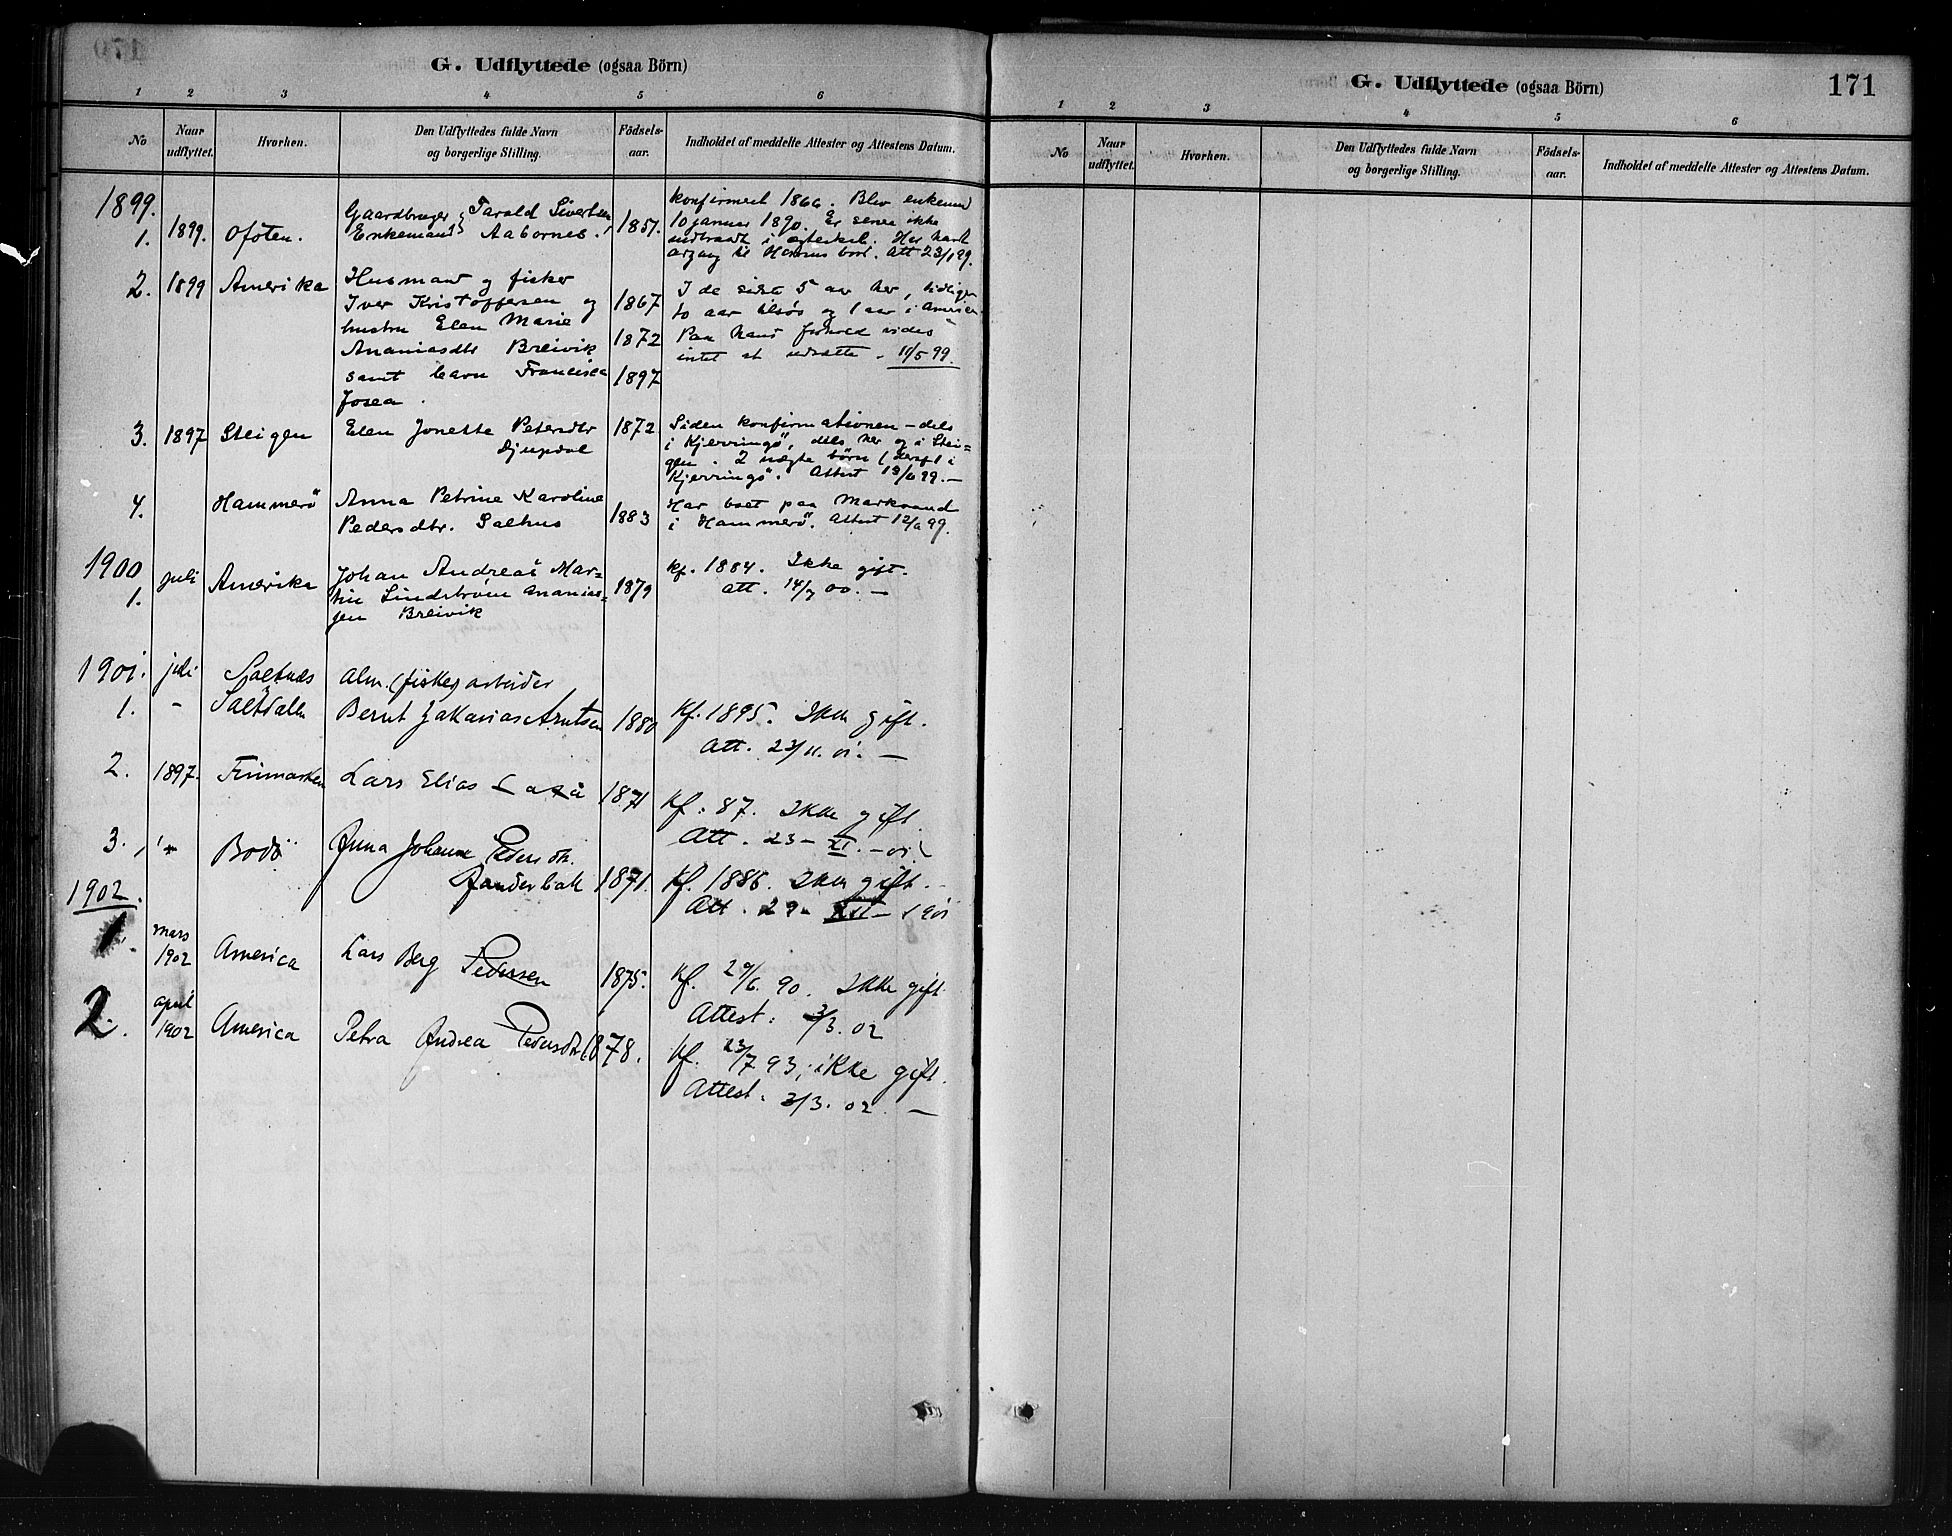 G. Udflyttede (ogsaa Börn)
1 2 3 4 5 6
No
Naar udflyttet.
Hvorhen.
Den Udflyttedes fulde Navn og borgerlige Stilling.
Födsels-aar.
Indholdet af meddelte Attester og Attestens Datum.
1899.
1. 1899. Ofoten.
Gaardbruger Tarald Sivertsen
Enkemand Aabornes. 1857.
konfirmert 1866. Blev enkemand
10 januar 1890. Er senere ikke
indtraadt i ægteskab. Har havt
adgang til Herrens bord. Att 23/1 99.
2. 1899 Amerika
Husmand og fisker
Iver Kristoffersen og 1867
hustru Elen Marie
Ananiasdtr Breivik 1872
samt barn Francisca 1897
Josea.
I de sidste 5 aar her, tidligere
to aar og 1 aar i Amerika
Paa hans forhold vides
intet at udsætte. 11/5 99.
3. 1897 Steigen
Elen Jonette Petersdtr 1872
Djupdal
Siden konfirmationen – dels
i Kjerringö, dels her og i Stei-
gen. 2 uægte börn (deraf 1 i
Kjerringö. Attest 13/6 99. –
4. Hammerö
Anna Petrine Karoline
Pedersdtr. Salhus 1883
Har boet paa Markvand
i Hammerö. Attest 99.
1900
1. juli Amerika
Johan Andreas Mar-
tin Lindström Ananias- 1879
sen Breivik
kf. 1884. Ikke gift.
att. 14/7 00. –
1901. juli Saltdalen
1. -
alm. (fisker) arbeider
Bernt Zakarias Arntsen 1880
Kf. 1895. Ikke gift.
Att. 23/11. 01. –
2. 1897. Finmarken
Lars Elias 1871
Kf: 87. Ikke gift.
Att. 23 – XI. – 01
3. Bodö
Anna Johanna Pedersdtr.
1871.
Kf. 1886. Ikke gift. –
Att. 29 – XII – 1901
1902.
1. mars 1902 America
Lars Berg Pedersen 1875.
Kf. 29/6. 90. Ikke gift
Attest: 3/3. 02
2. april 1902 America
Petra Andrea Pedersdtr 1878.
Kf. 23/7 93; ikke gift.
Attest: 3/3. 02. –
G. Udflyttede (ogsaa Börn)
171
1 2 3 4 5 6
No
Naar udflyttet.
Hvorhen.
Den Udflyttedes fulde Navn og borgerlige Stilling.
Födsels-aar.
Indholdet af meddelte Attester og Attestens Datum.